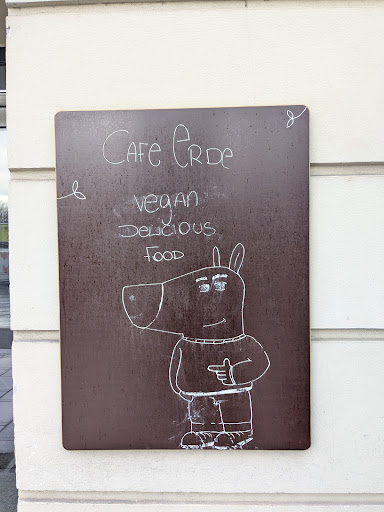 Cafe Erde
vegan
Delicious
Food